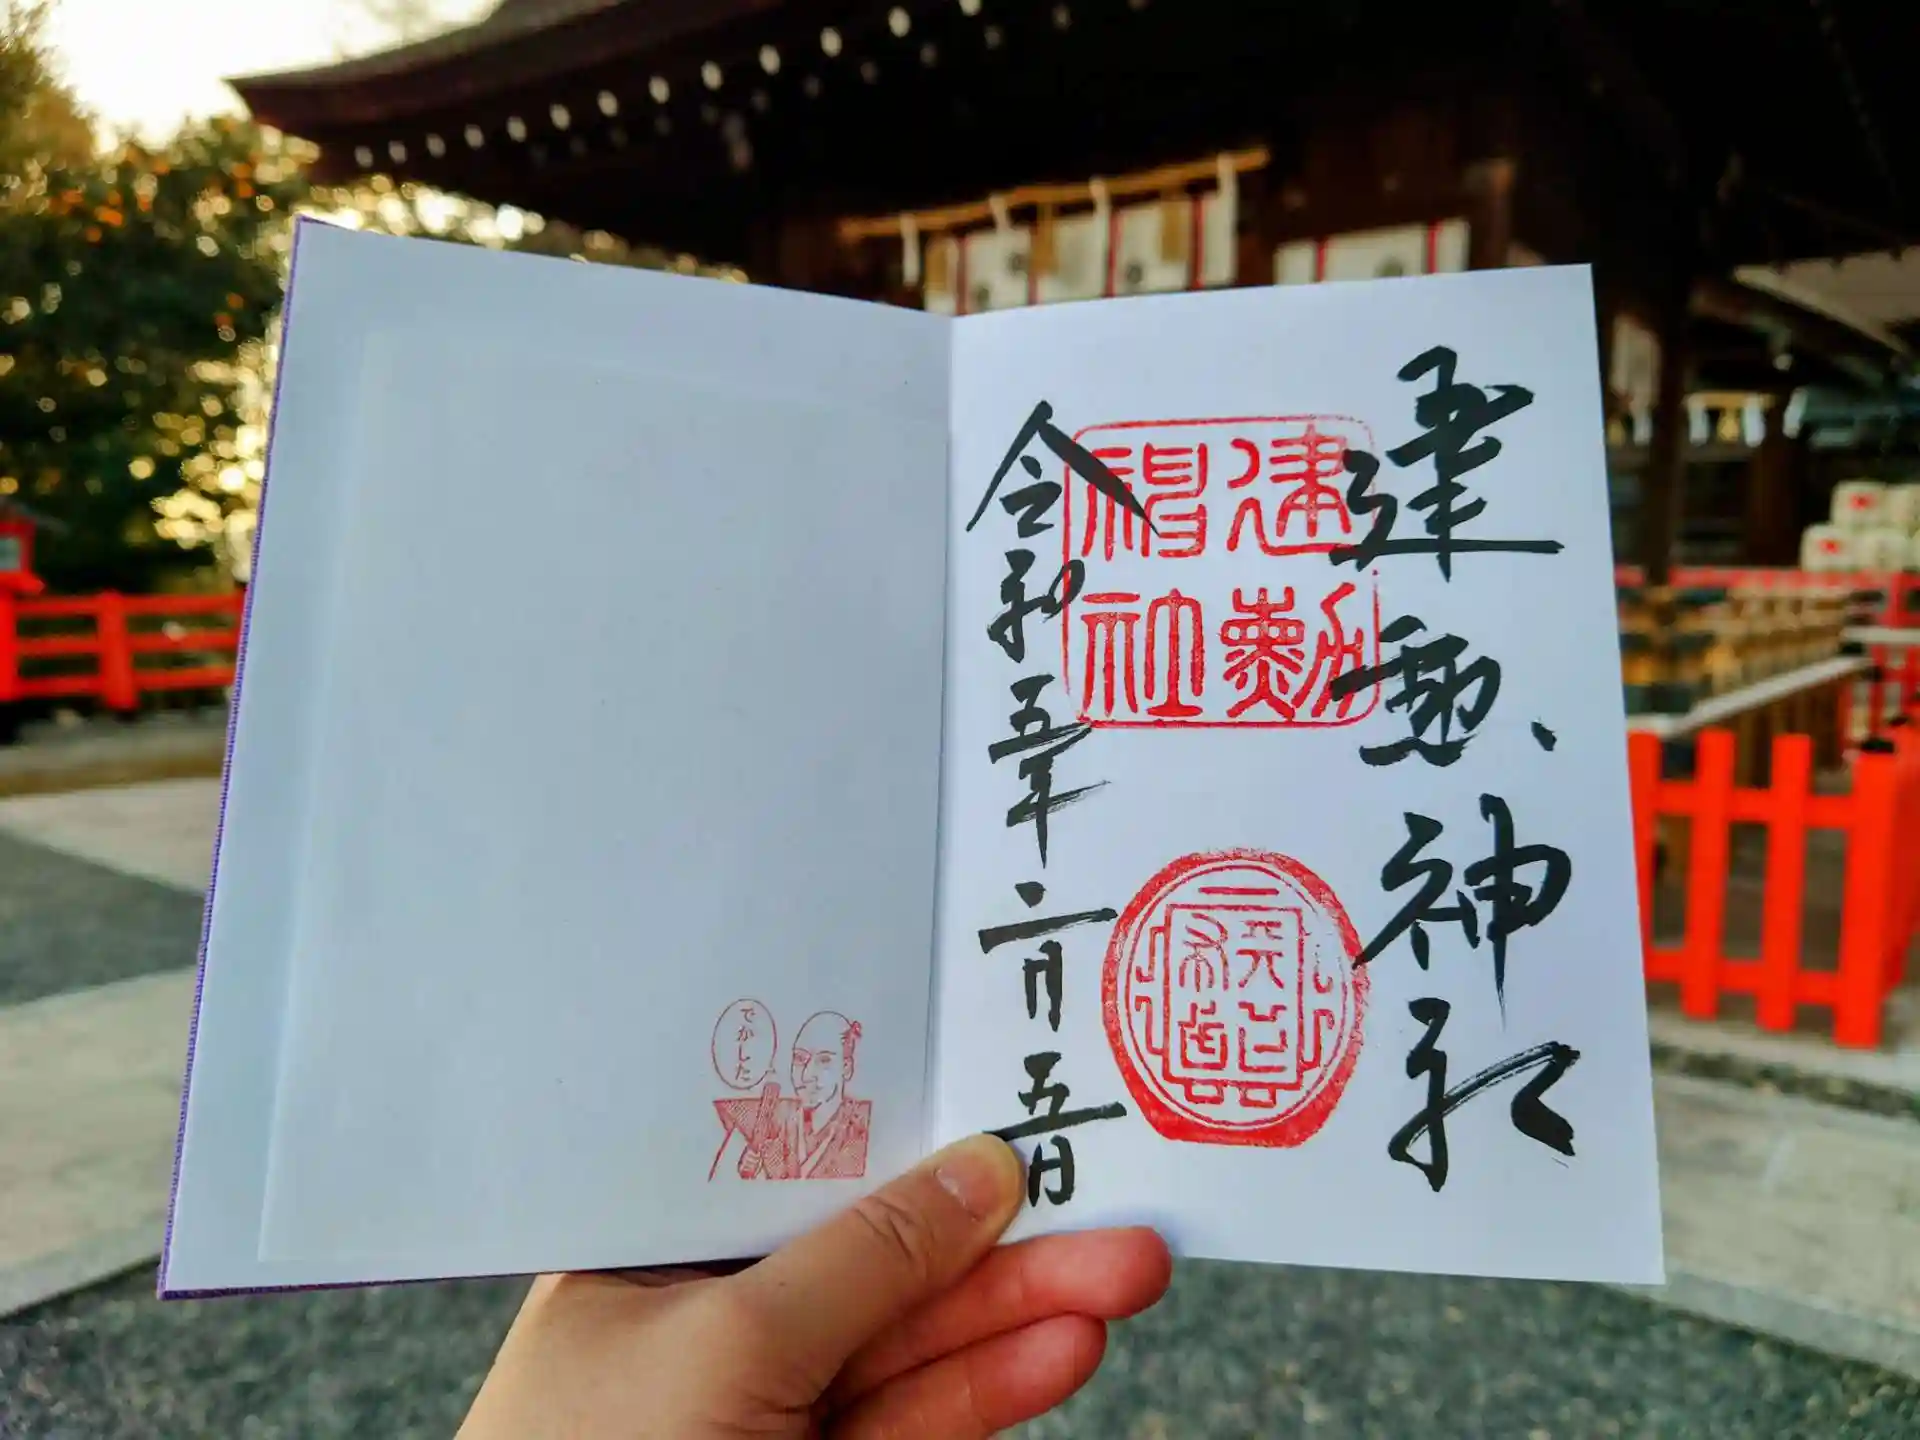 建勲神社
建勲
神社
令和五年二月五日
でかした